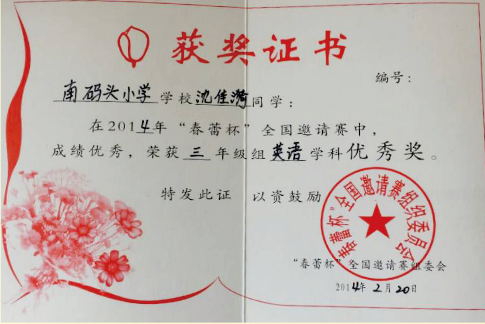 获奖证书
编号：
南码头小学学校沈佳漪同学：
在2014年“春蕾杯”全国邀请赛中，
成绩优秀，荣获三年级组英语学科优秀奖。
特发此证 以资鼓励
“春蕾杯”全国邀请赛组织委员会
“春蕾杯”全国邀请赛组委会
2014年2月20日